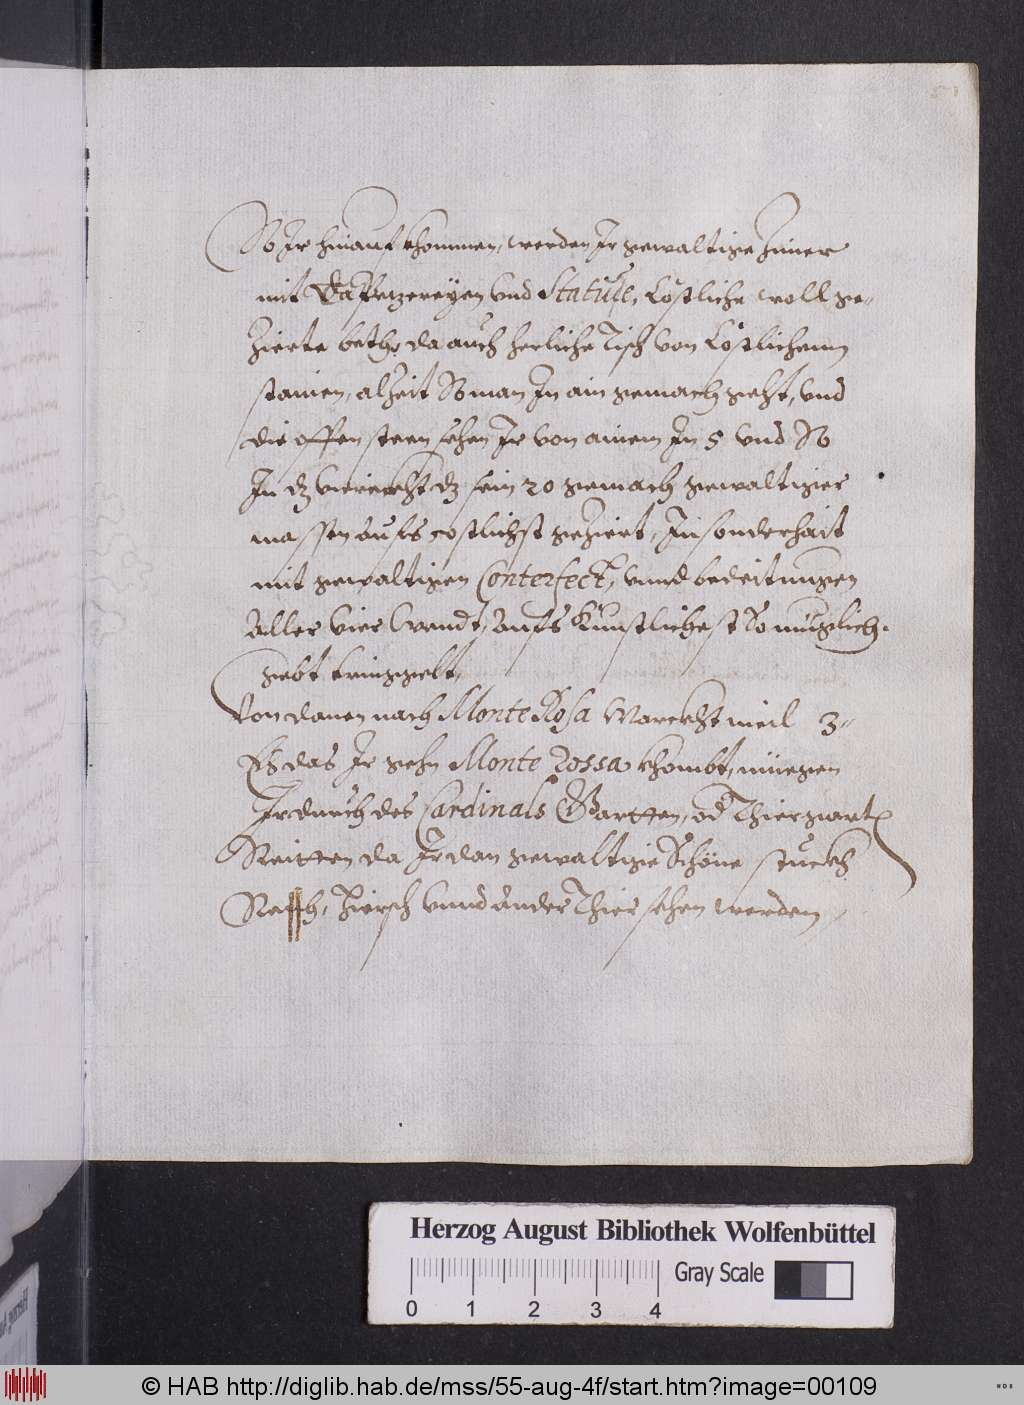 So Ir hinauf khommen, werden Ir gewaltige Zimer
mit Dapetzereyen vnd Statuse, Cöstliche woll ge-
Zierte beth, da auch herliche Tisch von Cöstlichenn
stainen, alzeit So man In ain gemach geht, vnd
die offen steen sehen Ir von ainem In 5 vnd So
In dz viereckht dz sein 20 gemach gewaltiger
massen aufs costlichst geziert, Insonderhait
mit gewaltigen Conterfect, vnnd bedeitungen
Aller vier Wendt, Aufs Kunstlichest So muglich.
Von danen nach Monte Rosa Marckht meil 3-
Eh das Ir gehn Monte Rossa khombt, müegen
Ir durch des Cardinals Gartten, od Thiergart
Reitten da Ir dan gewaltige Schöne stuckh
Rech, Hiersch vnnd ander Thier sehen werden
Herzog August Bibliothek Wolfenbüttel
Gray Scale
0 1 2 3 4
© HAB http://diglib.hab.de/mss/55-aug-4f/start.htm?image=00109